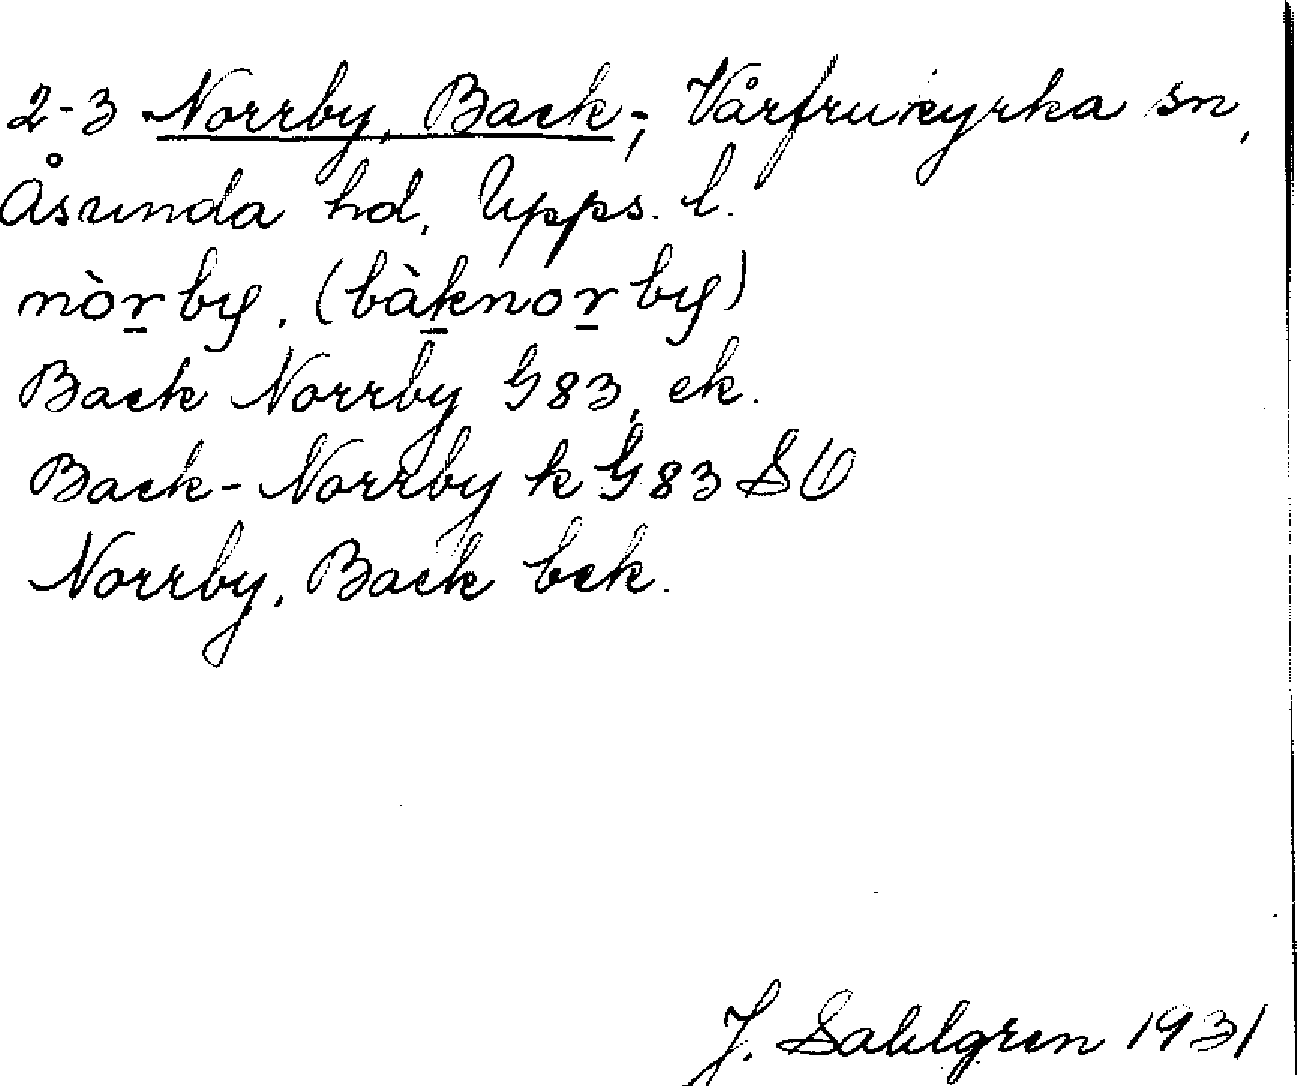 2-3 Norrby, Back-, Vårfrukyrka sn,
Åsunda hd, Upps. l.
nòrby. (bàknorby)
Back Norrby G83, ek.
Back-Norrby k G83 SV
Norrby, Back bek.
J. Sahlgren 1931